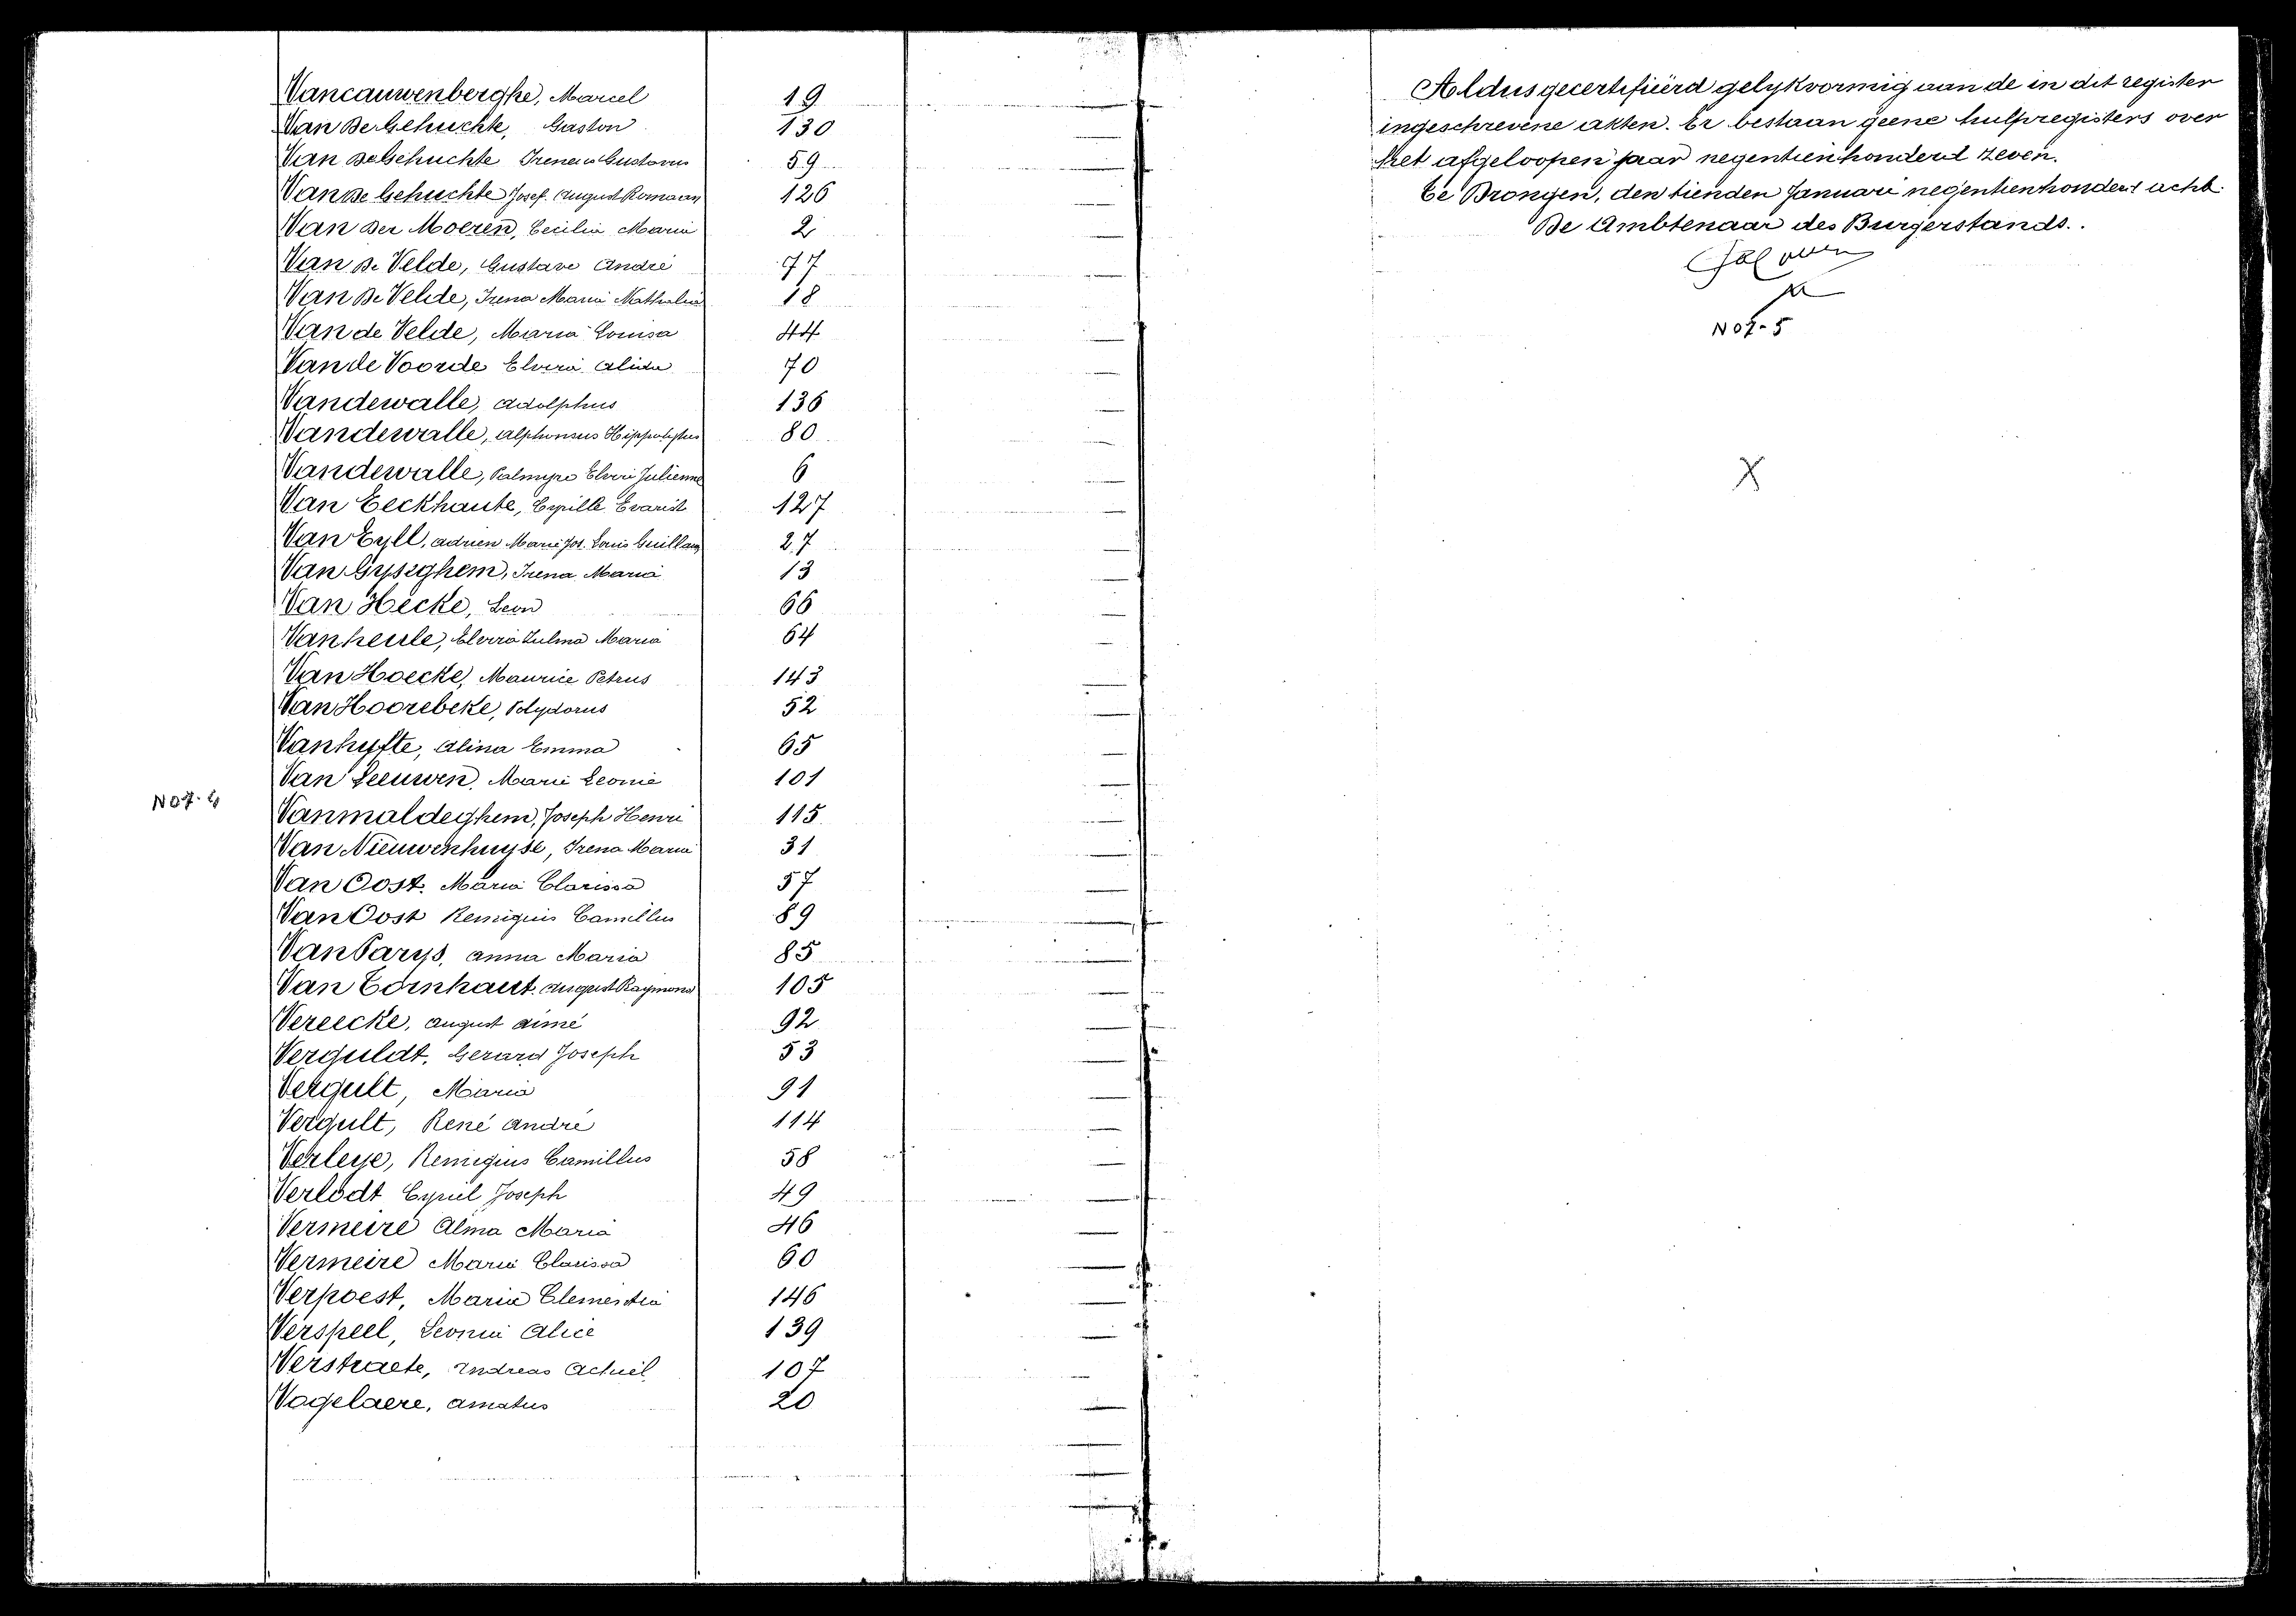 Vancauwenberghe, Marcel 19
Van De Gehuchte, Gaston 130
Van De Gehuchte Ireneus Gustavus 59
Van De Gehuchte Josef August Romaan 126
Van Der Moeren, Cecilia Maria 2
Van De Velde, Gustave André 77
Van De Velde, Irena Maria Nathalia 18
Van de Velde, Maria Louisa 44
Van de Voorde Elvira Alida 70
Vandewalle, Adolphus 136
Vandewalle, Alphonsus Hippolytus 80
Vandewalle, Palmyre Elvire Julienne 6
Van Eeckhaute, Cyrille Evarist 127
Van Eyll, Adrien Marie Jos. Louis Guillaume 27
Van Gyseghem, Irena Maria 13
Van Hecke, Leon 66
Vanheule, Elvira Zulma Maria 64
Van Hoecke, Maurice Petrus 143
Van Hoorebeke, Polydorus 52
Vanhyfte, Alina Emma 65
Van Leeuwen, Marie Leonie 101
N07-4
Vanmaldeghem, Joseph Henri 115
Van Nieuwenhuyse, Irena Maria 31
Van Oost, Maria Clarissa 57
Van Oost Remigius Camillus 89
Van Parys, Anna Maria 85
Van Tornhaut, August Raymond 105
Vereecke, August Aimé 92
Verguldt, Gerard Joseph 53
Vergult, Maria 91
Vergult, René André 114
Verleye, Remigius Camillus 58
Verlodt Cyriel Joseph 49
Vermeire Alma Maria 46
Vermeire Maria Clarissa 60
Verpoest, Maria Clementia 146
Verspeel, Leonie Alice 139
Verstraete, Andreas Achiel 107
Vogelaere, Amatus 20
Aldus gecertifiëerd gelykvormig aan de in dit register
ingeschrevene akten. Er bestaan geene hulpregisters over
het afgeloopen jaar negentienhonderd zeven.
Te Drongen, den tienden Januari negentienhonderd acht.
De Ambtenaar des Burgerstands.
N07-5
X